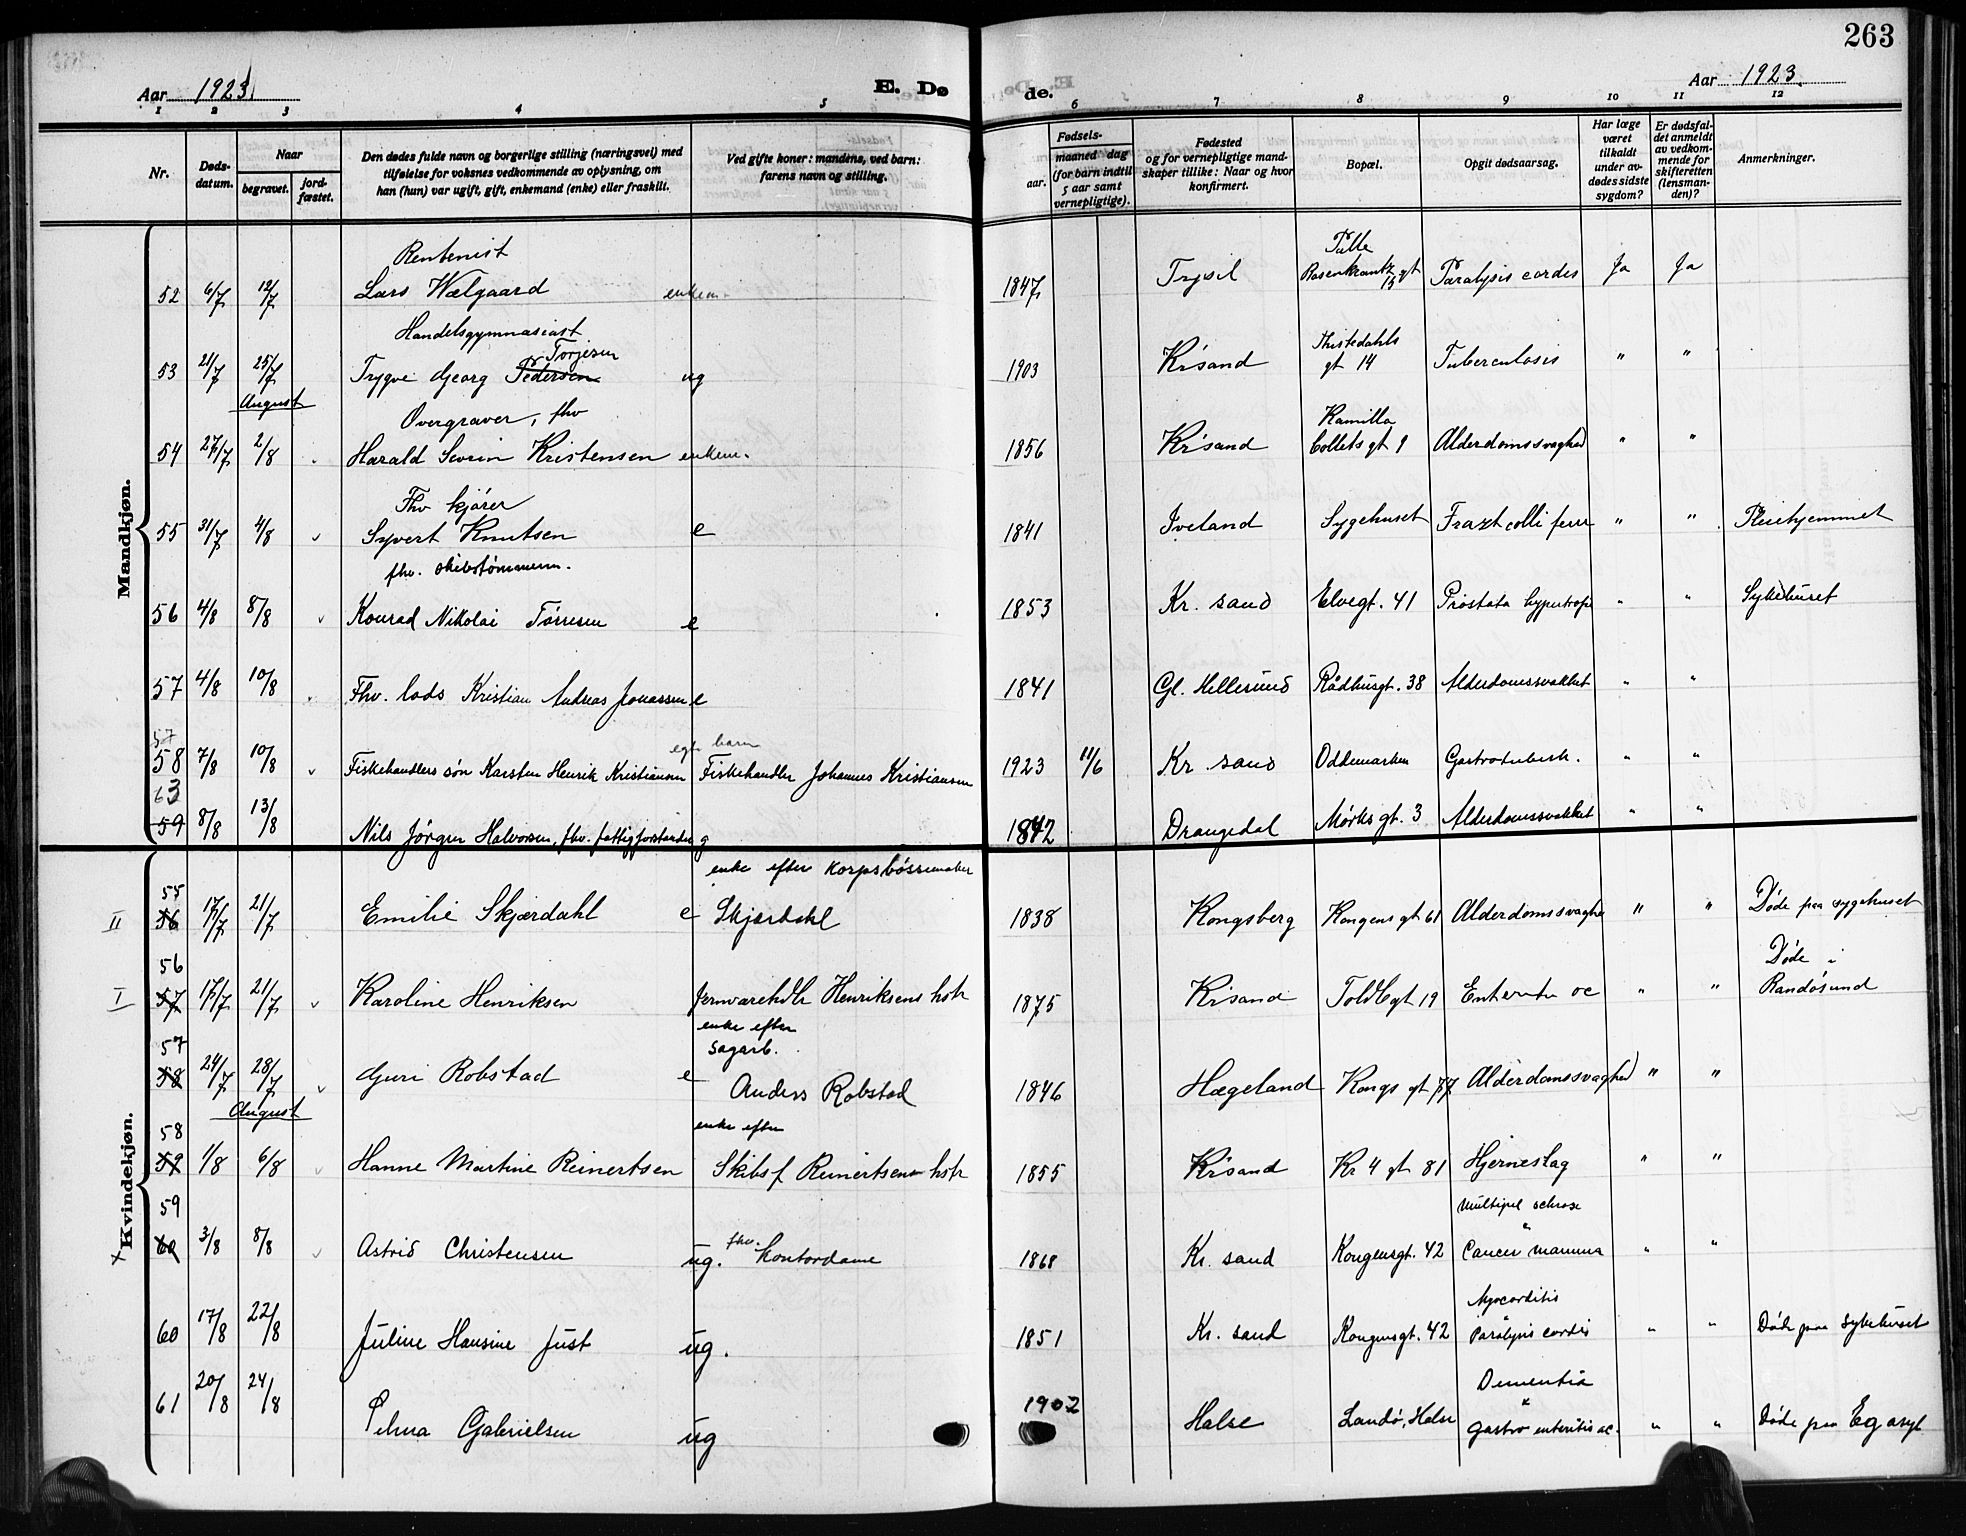 263
Aar 1923 E. Dø de. Aar 1923.
1 2 3 4 5 6 7 8 9 10 11 12
Nr.
Døds-
datum.
Naar
begravet.
jord-
fæstet.
Den dødes fulde navn og borgerlige stilling (næringsvei) med
tilføielse for voksnes vedkommende av oplysning, om
han (hun) var ugift, gift, enkemand (enke) eller fraskilt.
Ved gifte koner: mandens, ved barn:
farens navn og stilling.
Fødsels-
aar.
maaned dag
(for barn indtil
5 aar samt
vernepligtige).
Fødested
og for vernepligtige mand-
skaper tillike: Naar og hvor
konfirmert.
Bopæl.
Opgit dødsaarsag.
Har læge
været
tilkaldt
under av-
dødes sidste
sygdom?
Er dødsfal-
det anmeldt
av vedkom-
mende for
skifteretten
(lensman-
den)?
Anmerkninger.
Mandkjøn.
Rentenist
52 6/7 12/7 Lars Wælgaard enkem. 1847 Trysil Palle Rosenkrantz gt 15 Paralysis cordis Ja Ja
Handelsgymnasiast
Torjesen
53 21/7 25/7 Trygve Georg Pedersen ug 1903 Kr'sand Tristedahls gt 14 Tuberculosis " "
August
Overgraver, fhv
54 27/7 2/8 Harald Sevrin Kristensen enkem. 1856 Kr'sand Kamilla Collets gt 9 Alderdomssvaghed " "
Fhv kjører
55 31/7 4/8 Syvert Knutsen e 1841 Iveland Sygehuset Frakt colli fem " " Pleiehjemmet
fhv. skibstømmerm.
56 4/8 8/8 Konrad Nikolai Tørresen e 1853 Kr. sand Elvegt. 41 Prostata hypertrofi " " Sykehuset
57 4/8 10/8 Fhv. lods Kristian Andreas Jonassen e 1841 Gl. Hellesund Rådhusgt. 38 Alderdomssvakhet " "
57 egte barn
58 7/8 10/8 Fiskehandlers søn Karsten Henrik Kristiansen Fiskehandler Johannes Kristiansen 1923 11/6 Kr. sand Oddemarken Gastrotuberk. " "
63
59 8/8 13/8 Nils Jörgen Halvorsen, fhv. fattigforstander g 1842 Drangedal Mørks gt. 3 Alderdomssvakhet " "
Kvindekjøn.
enke efter Korpsbøssemaker
55
II 56 17/7 21/7 Emilie Skjærdahl e Skjærdahl 1838 Kongsberg Kongens gt 61 Alderdomssvaghe " " Døde paa sygehuset
56
I 57 17/7 21/7 Karoline Henriksen Jernvarehdlr Henriksens hstr 1875 Kr'sand Toldbgt 19 " " Døde i Randøsund
57 enke efter
sagarb.
58 24/7 28/7 Guri Robstad e Anders Robstad 1846 Hægeland Kongs gt 77 Alderdomssvaghed " "
August
58 enke efter
59 1/8 6/8 Hanne Martine Reinertsen Skibsf Reinertsens hstr 1855 Kr'sand Kr 4 gt 81 Hjerneslag " "
59 Multipel sclrose
x 60 3/8 8/8 Astrid Christensen ug. fhv. kontordame 1868 Kr. sand Kongensgt. 42 Cancer mamma " "
60 17/8 22/8 Juline Hansine Just ug. 1851 Kr. sand Kongensgt. 42 Myocarditis Paralysis cordis " " Døde paa Sykehuset
61 20/8 24/8 Selma Gabrielsen ug 1902 Halse Landø, Halse Dementia Gastro enteritis ac. " " Døde paa Eg asyl